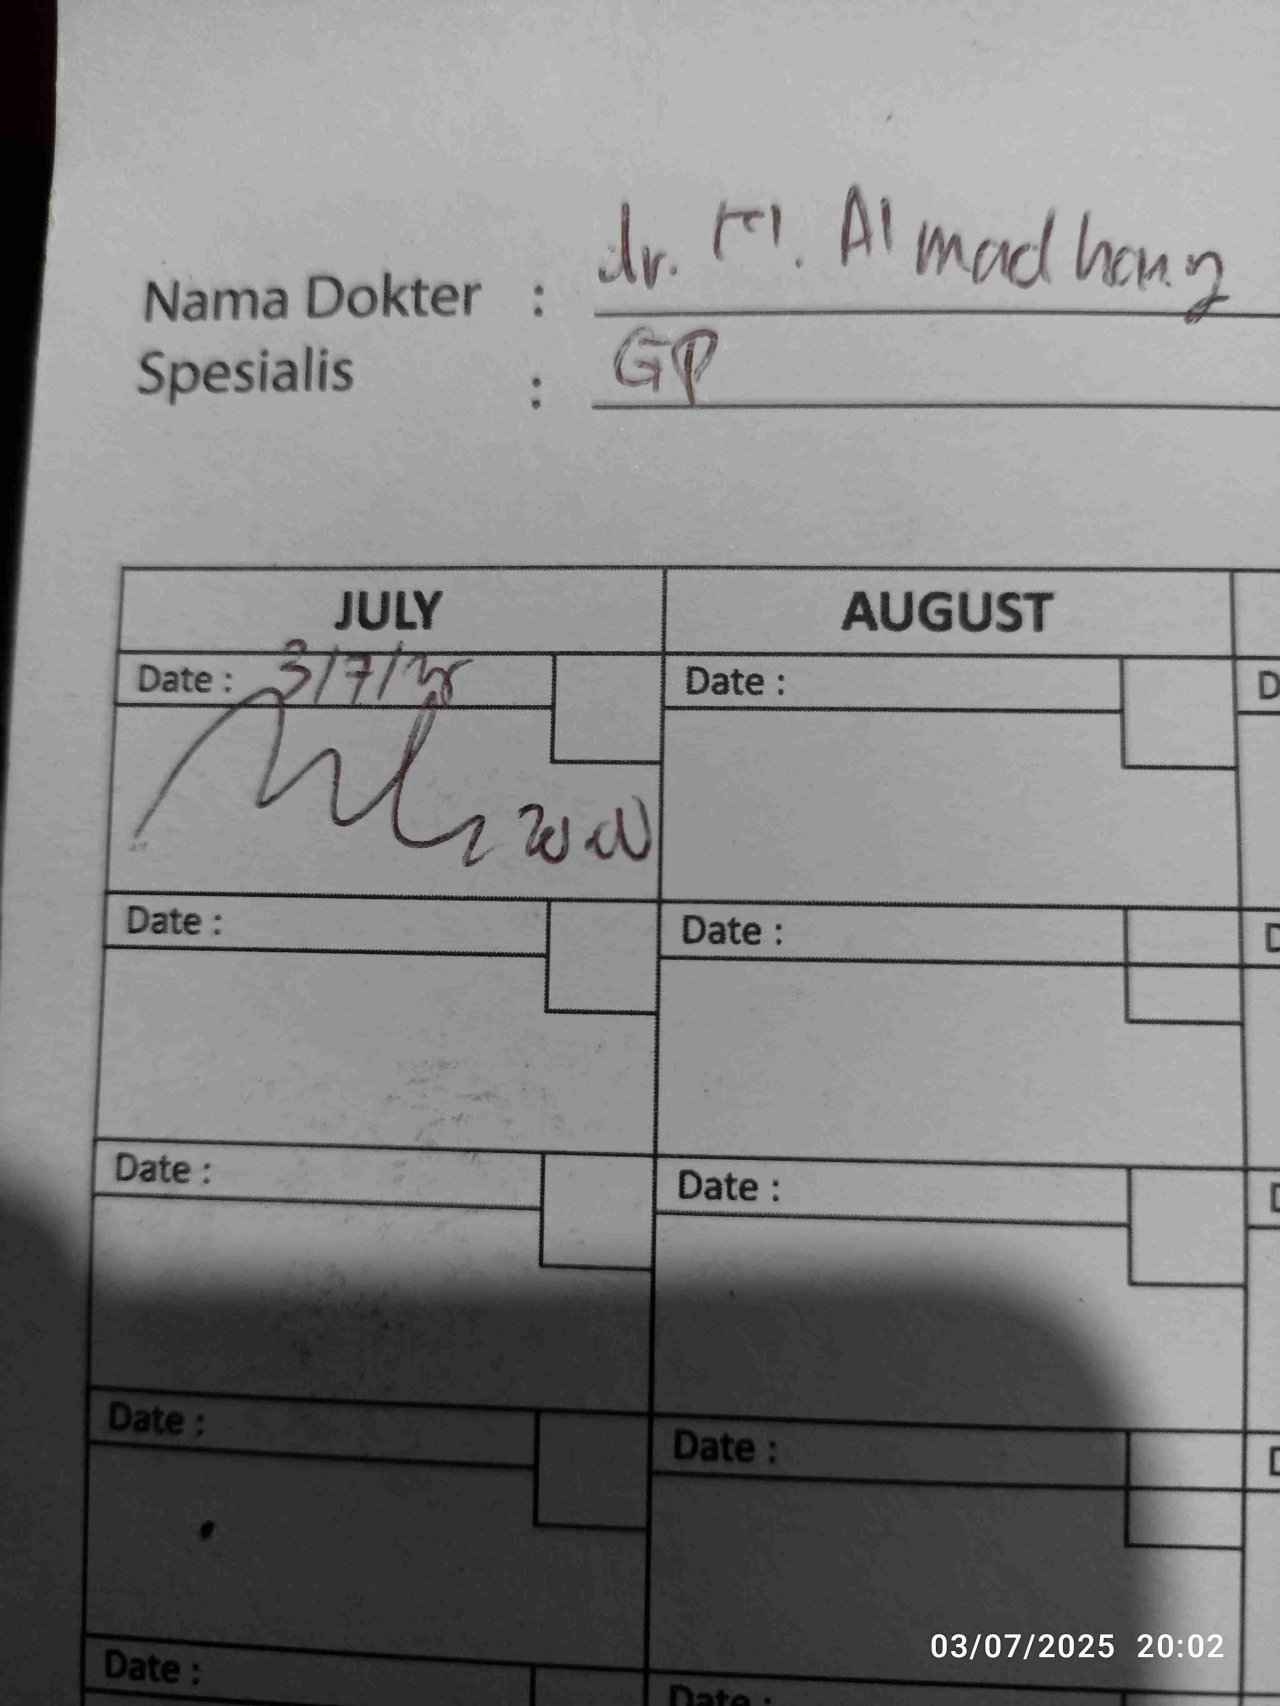 Nama Dokter : dr. M. Almadhany
Spesialis : GP
JULY AUGUST
Date : 3/7/25 Date :
Date : Date :
Date : Date :
Date : Date :
Date : Date :
03/07/2025 20:02